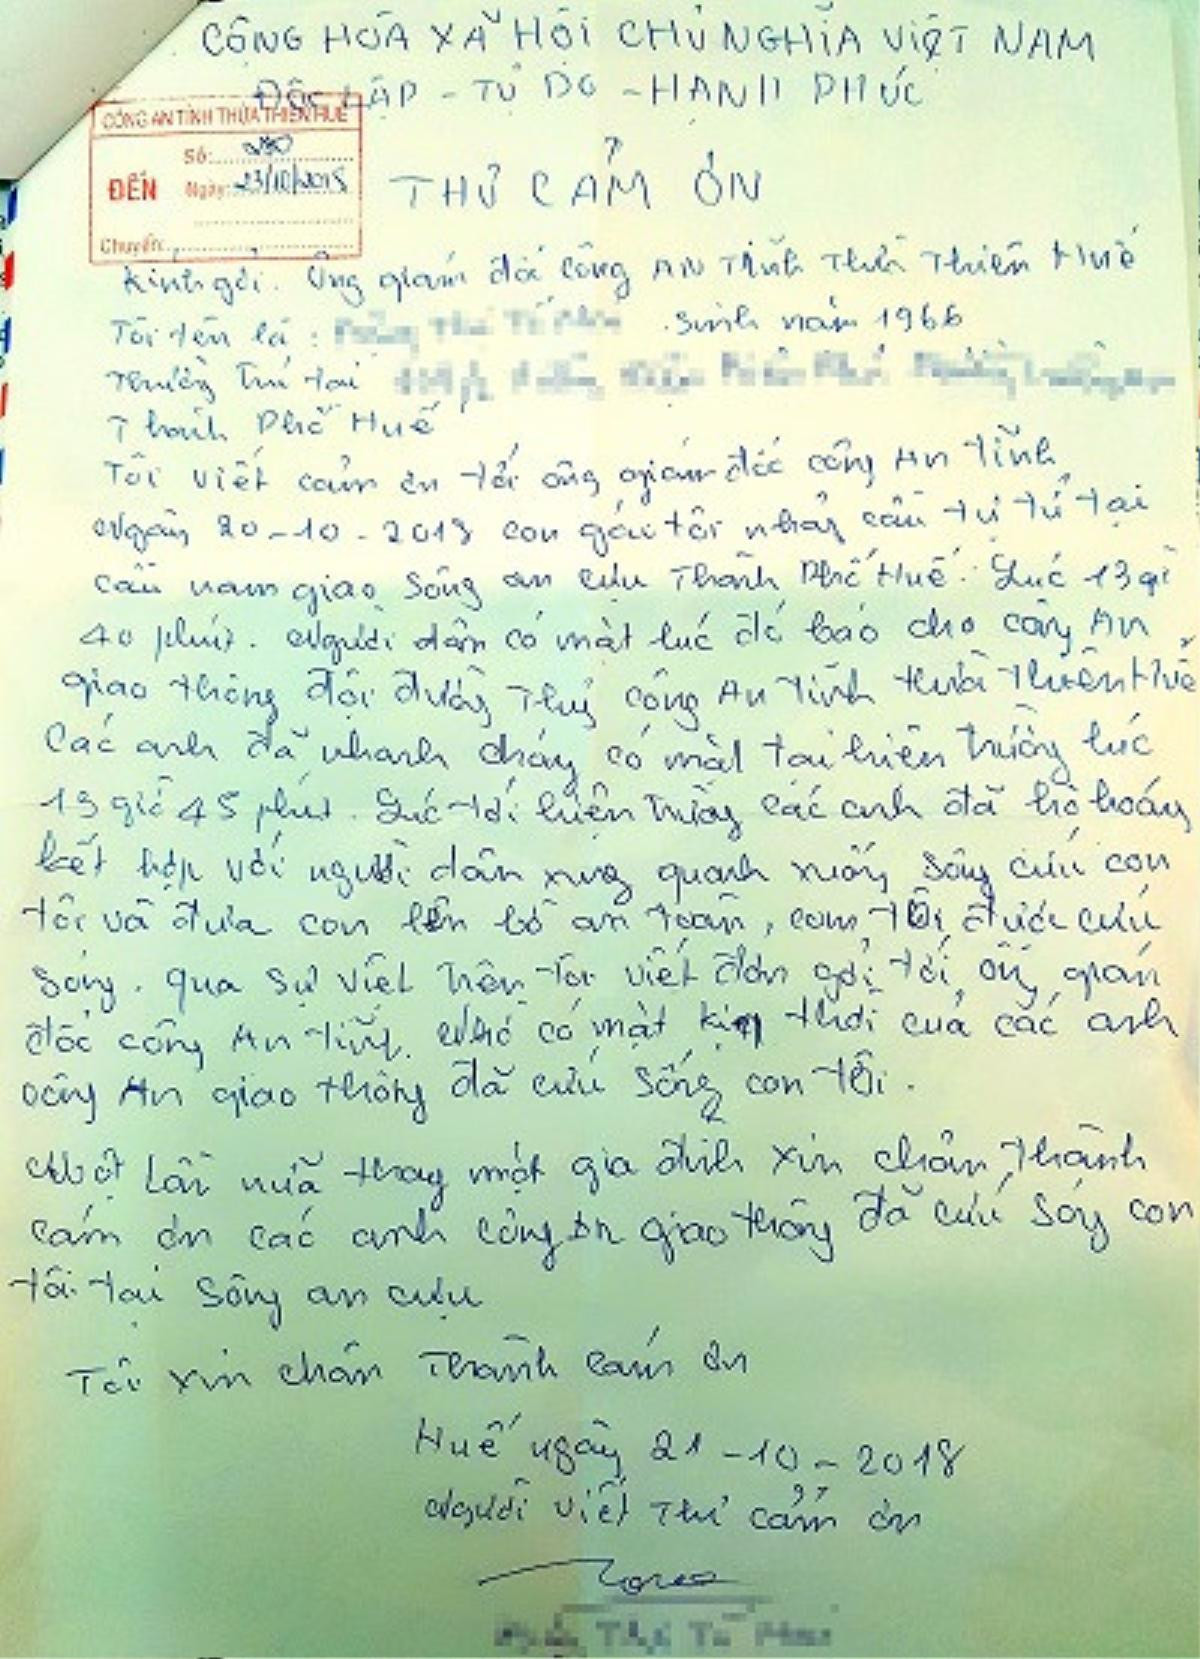 CỘNG HÒA XÃ HỘI CHỦ NGHĨA VIỆT NAM
ĐỘC LẬP - TỰ DO - HẠNH PHÚC
CÔNG AN TỈNH THỪA THIÊN HUẾ
Số:
ĐẾN Ngày: 23/10/2018
Chuyển:
THƯ CẢM ƠN
Kính gởi. Ông giám đốc công AN Tỉnh Thừa Thiên Huế
Tôi tên là : sinh năm 1966
Thường Trú tại
Thành Phố Huế
Tôi viết cảm ơn tới ông giám đốc công An tỉnh
Ngày 20-10-2018 con gái tôi nhảy cầu tự tử tại
cầu nam giao sông an cựu Thành Phố Huế. Lúc 13 giờ
40 phút. Người dân có mặt lúc đó báo cho công An
giao thông đội đường Thủy công An tỉnh thừa thiên Huế
Các anh đã nhanh chóng có mặt tại hiện trường lúc
13 giờ 45 phút. Lúc tới hiện trường các anh đã hô hoáng
kết hợp với người dân xung quanh xuống sông cứu con
tôi và đưa con lên bờ an toàn, con tôi được cứu
sống. Qua sự việt trên tôi viết đơn gởi tới ông giám
đốc công An tỉnh. Nhờ có mặt kịp thời của các anh
công An giao thông đã cứu sống con tôi.
Một lần nữa thay mặt gia đình xin chân thành
cám ơn các anh công an giao thông đã cứu sống con
tôi tại sông an cựu
Tôi xin chân thành cám ơn
Huế ngày 21-10-2018
Người viết Thư cảm ơn